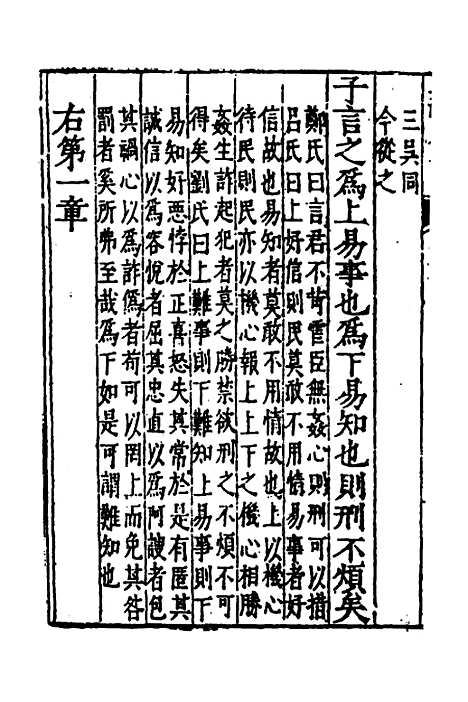 三吳同
今從之
子言之爲上易事也爲下易知也則刑不煩矣
鄭氏曰言君不苛虐臣無姦心則刑可以措
呂氏曰上好信則民莫敢不用情易事者好
信故也易知者莫敢不用情故也上以機心
待民則民亦以機心報上上下之機心相勝
姦生詐起犯者莫之勝禁欲刑之不煩不可
得矣劉氏曰上難事則下難知上易事則下
易知好惡悖於正喜怒失其常於是有匿其
誠信以爲容悅者屈其忠直以爲阿諛者包
其禍心以爲詐僞者苟可以罔上而免其咎
罰者奚所弗至哉爲下如是可謂難知也
右第一章